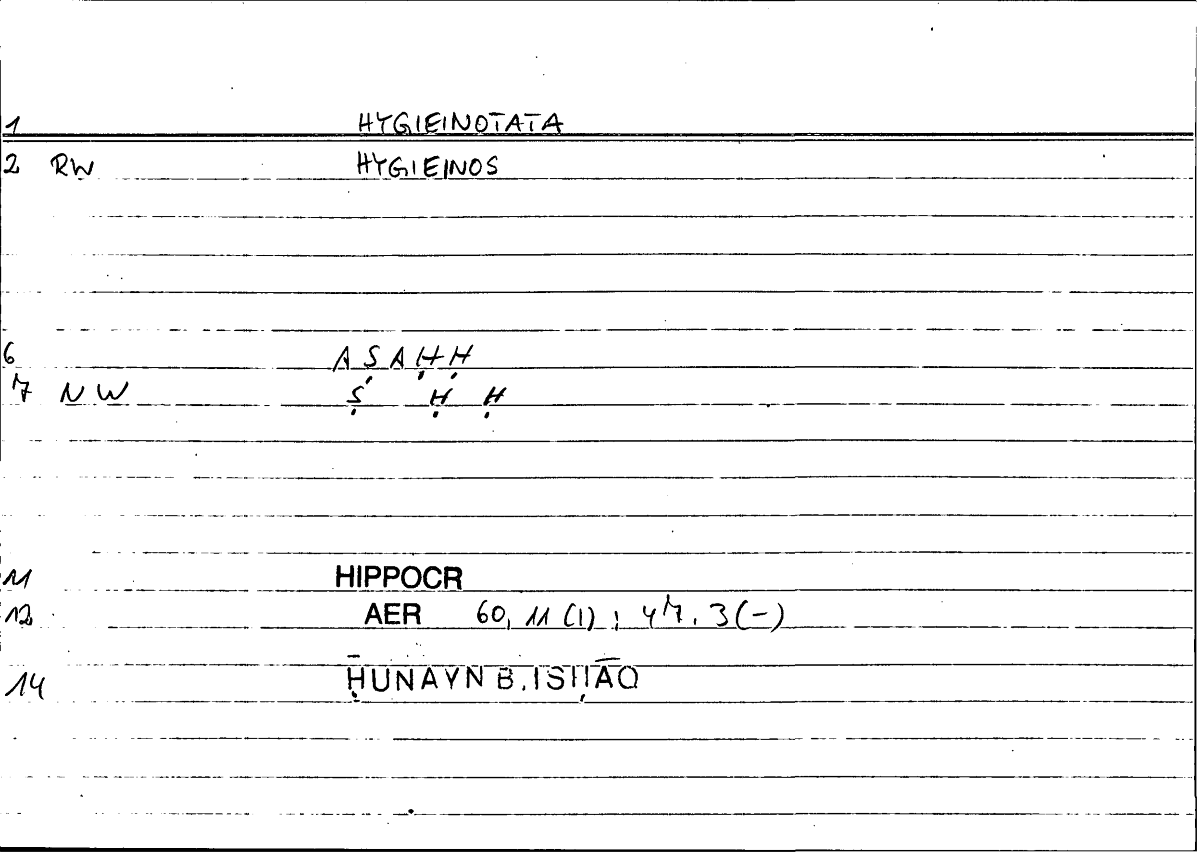 1 HYGIEINOTATA
2 RW HYGIEINOS
6 AṢAḤḤ
7 NW Ṣ Ḥ Ḥ
11 HIPPOCR
12 AER 60, 11 (1) ; 47, 3 (-)
14 ḤUNAYN B. ISḤĀQ